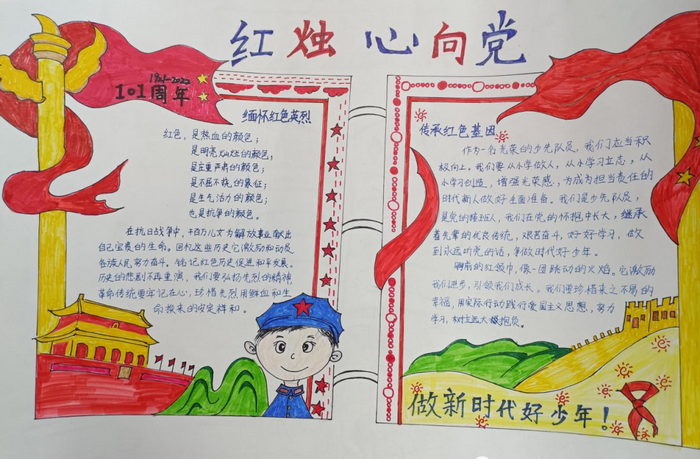 红烛心向党
1921-2022
101周年
缅怀红色英烈
红色，是热血的颜色；
是明亮灿烂的颜色；
是庄重肃肃的颜色；
是不屈不挠的象征；
是生气活力的颜色；
也是抗争的颜色。
在抗日战争中，千百万儿女为解放事业献出
自己宝贵的生命。回忆这些历史它激励和动员
各族人民努力奋斗。铭记红色历史促进和平发展。
历史的悲剧不再重演，我们要弘扬先烈的精神
革命传统要牢记在心，珍惜先烈用鲜血和生
命换来的安定祥和。
传承红色基因
作为一名光荣的少先队员，我们应当积
极向上。我们要从小学做人，从小学习立志，从
小学习创造，增强光荣感，为成为担当责任的
时代新人做好全面准备。我们是少先队员，
是党的接班人，我们在党的怀抱中长大，继承
着先辈的优良传统，艰苦奋斗，好好学习，做
到永远听党的话，争做时代好少年。
胸前的红领巾，像一团跳动的火焰。它激励
我们进步，引领我们成长。我们要珍惜来之不易的
幸福，用实际行动践行爱国主义思想，努力
学习，树立远大抱负。
做新时代好少年！